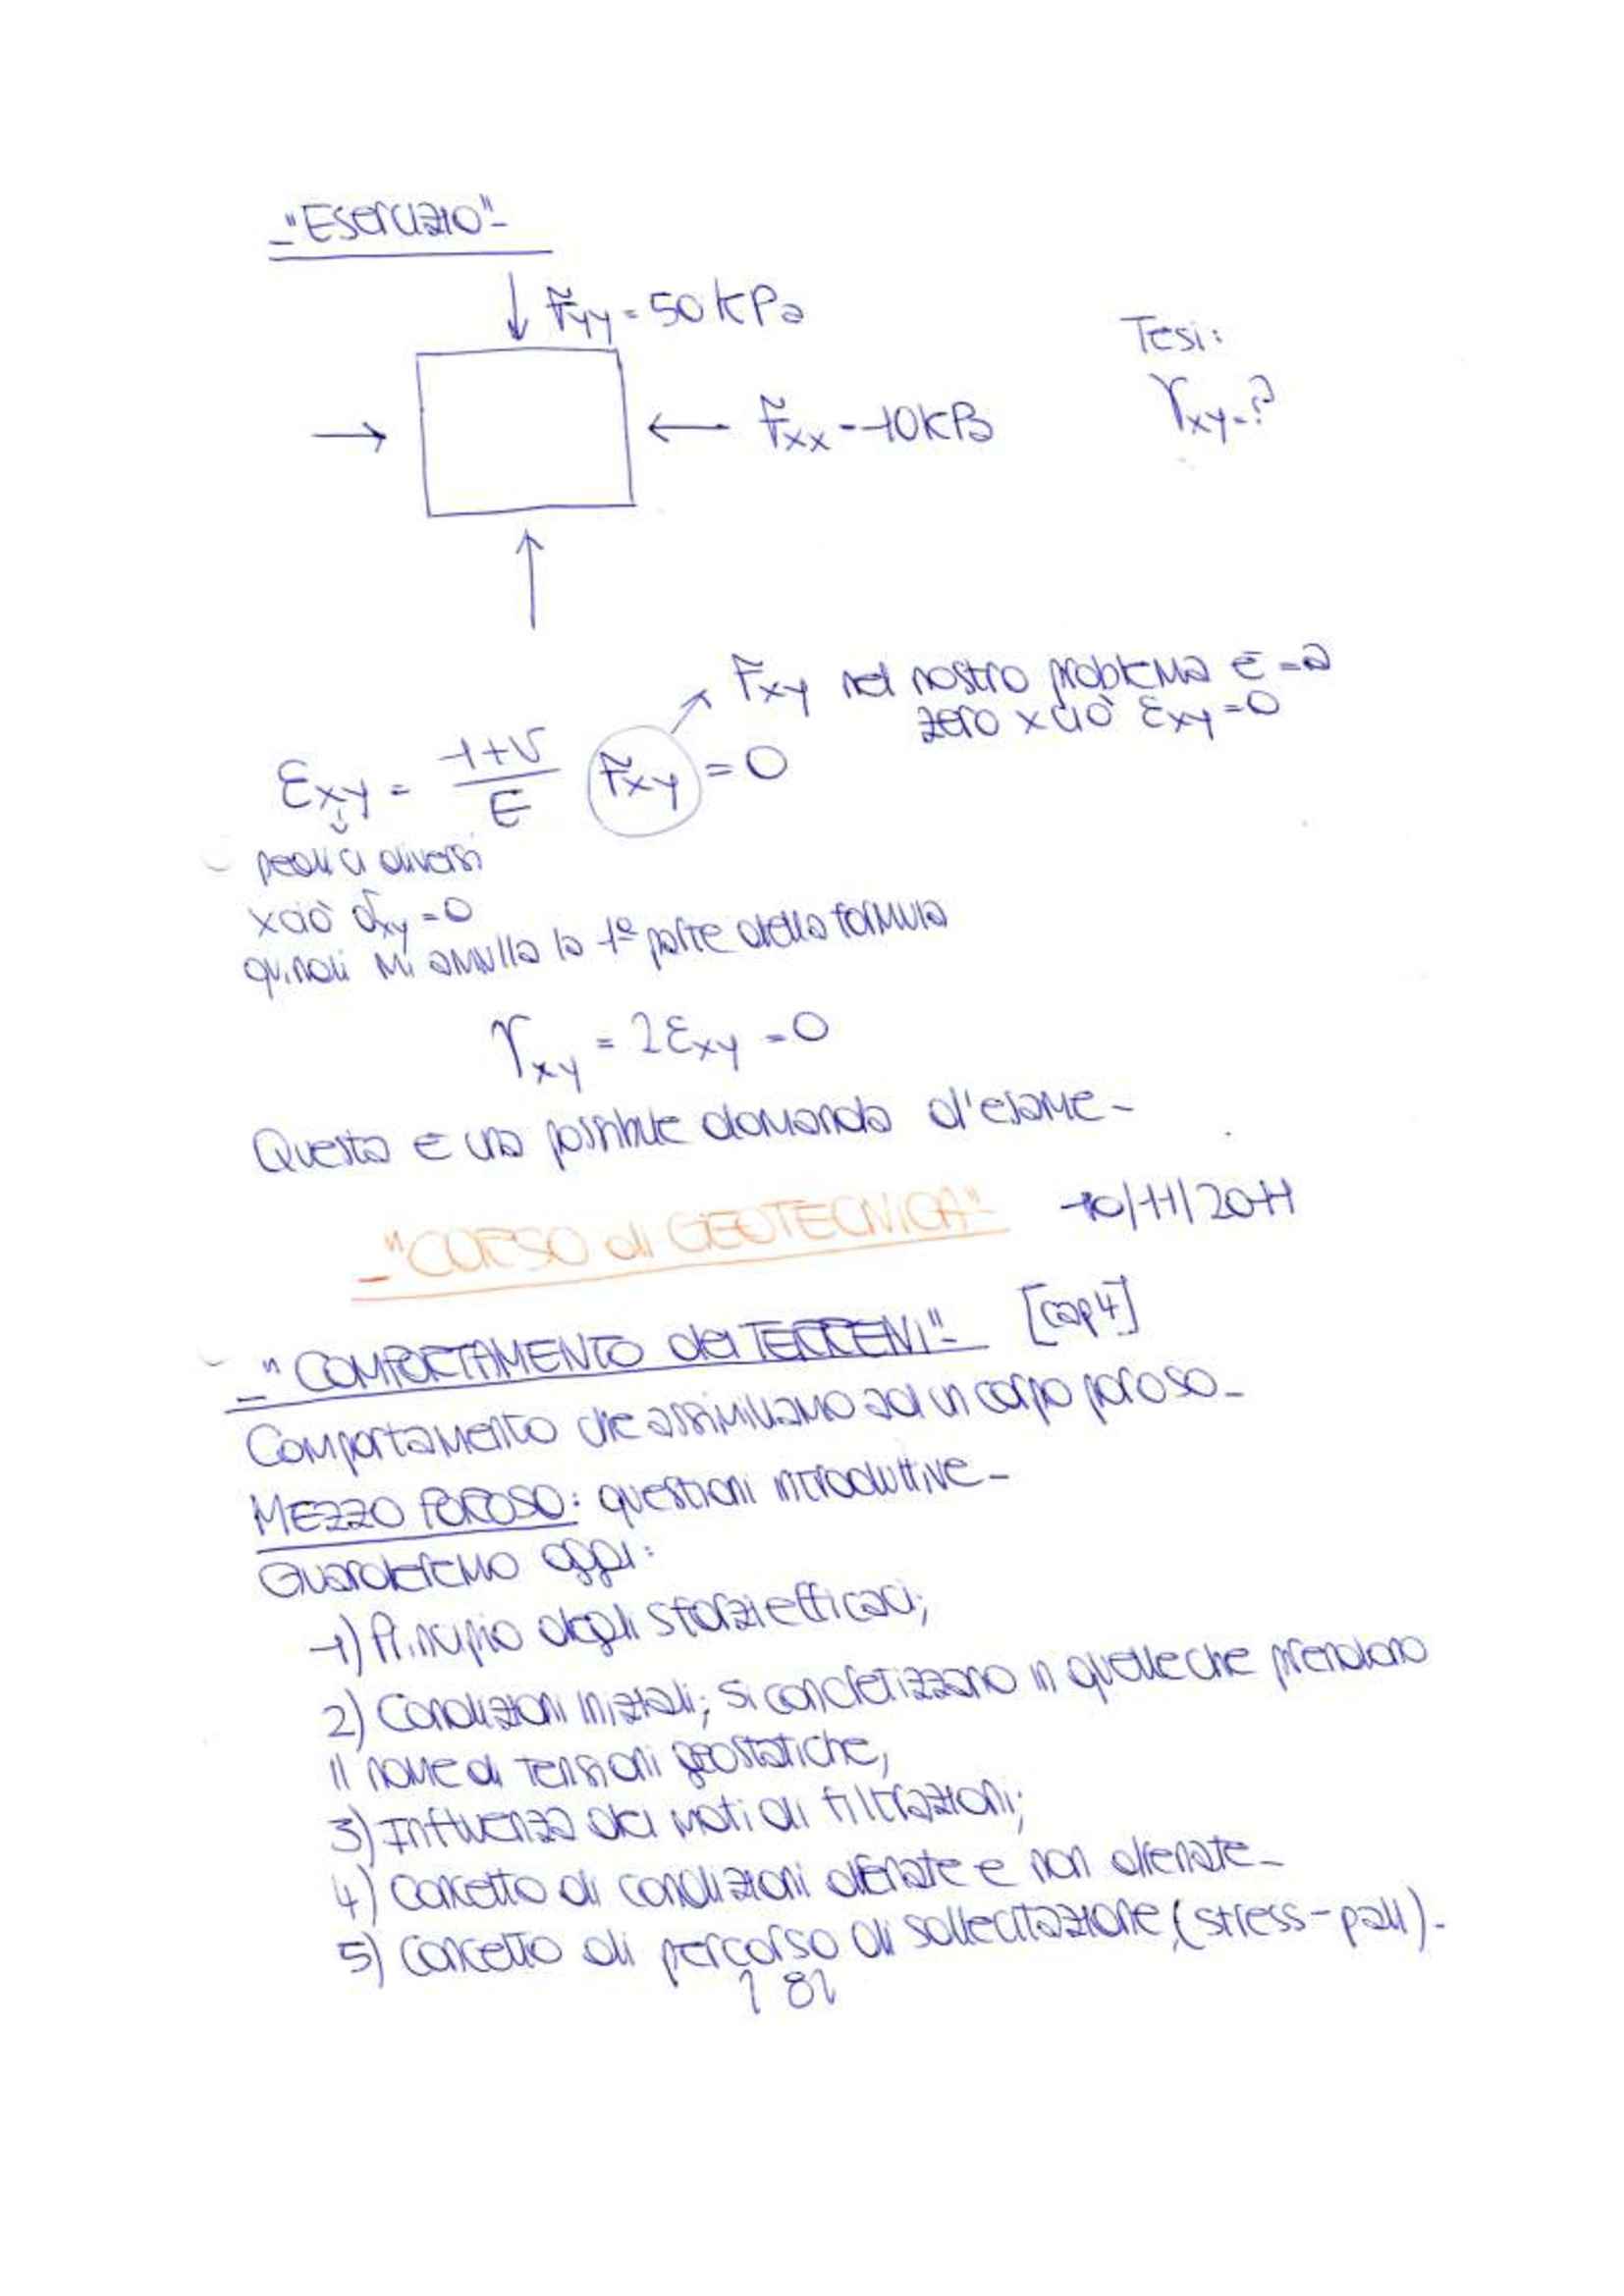 "Esercizio"
σ̃yy = 50 kPa
Tesi:
γxy = ?
σ̃xx = 10 kPa
σ̃xy nel nostro problema è = a
zero xciò εxy = 0
εxy = (1+ν)/E σ̃xy = 0
pedici diversi
xciò δxy = 0
quindi mi annulla la 1ª parte della formula
γxy = 2εxy = 0
Questa è una possibile domanda d'esame -
"CORSO di GEOTECNICA" 10/11/2011
"COMPORTAMENTO dei TERRENI" [cap 4]
Comportamento che assimiliamo ad un corpo poroso -
MEZZO POROSO: questioni introduttive -
Guarderemo oggi:
1) Principio degli sforzi efficaci;
2) Condizioni iniziali; si concretizzano in quelle che prendono
il nome di tensioni geostatiche;
3) Influenza dei moti di filtrazioni;
4) Concetto di condizioni drenate e non drenate -
5) Concetto di percorso di sollecitazione (stress-path) -
182